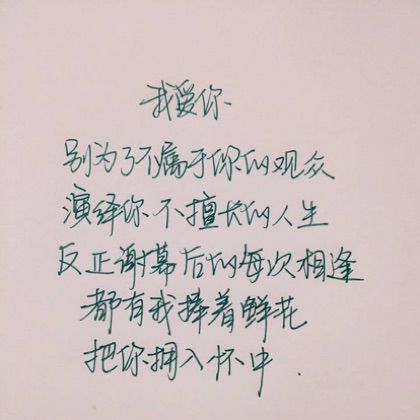 我爱你
别为了不属于你的观众
演绎你不擅长的人生
反正谢幕后的每次相逢
都有我捧着鲜花
把你拥入怀中.